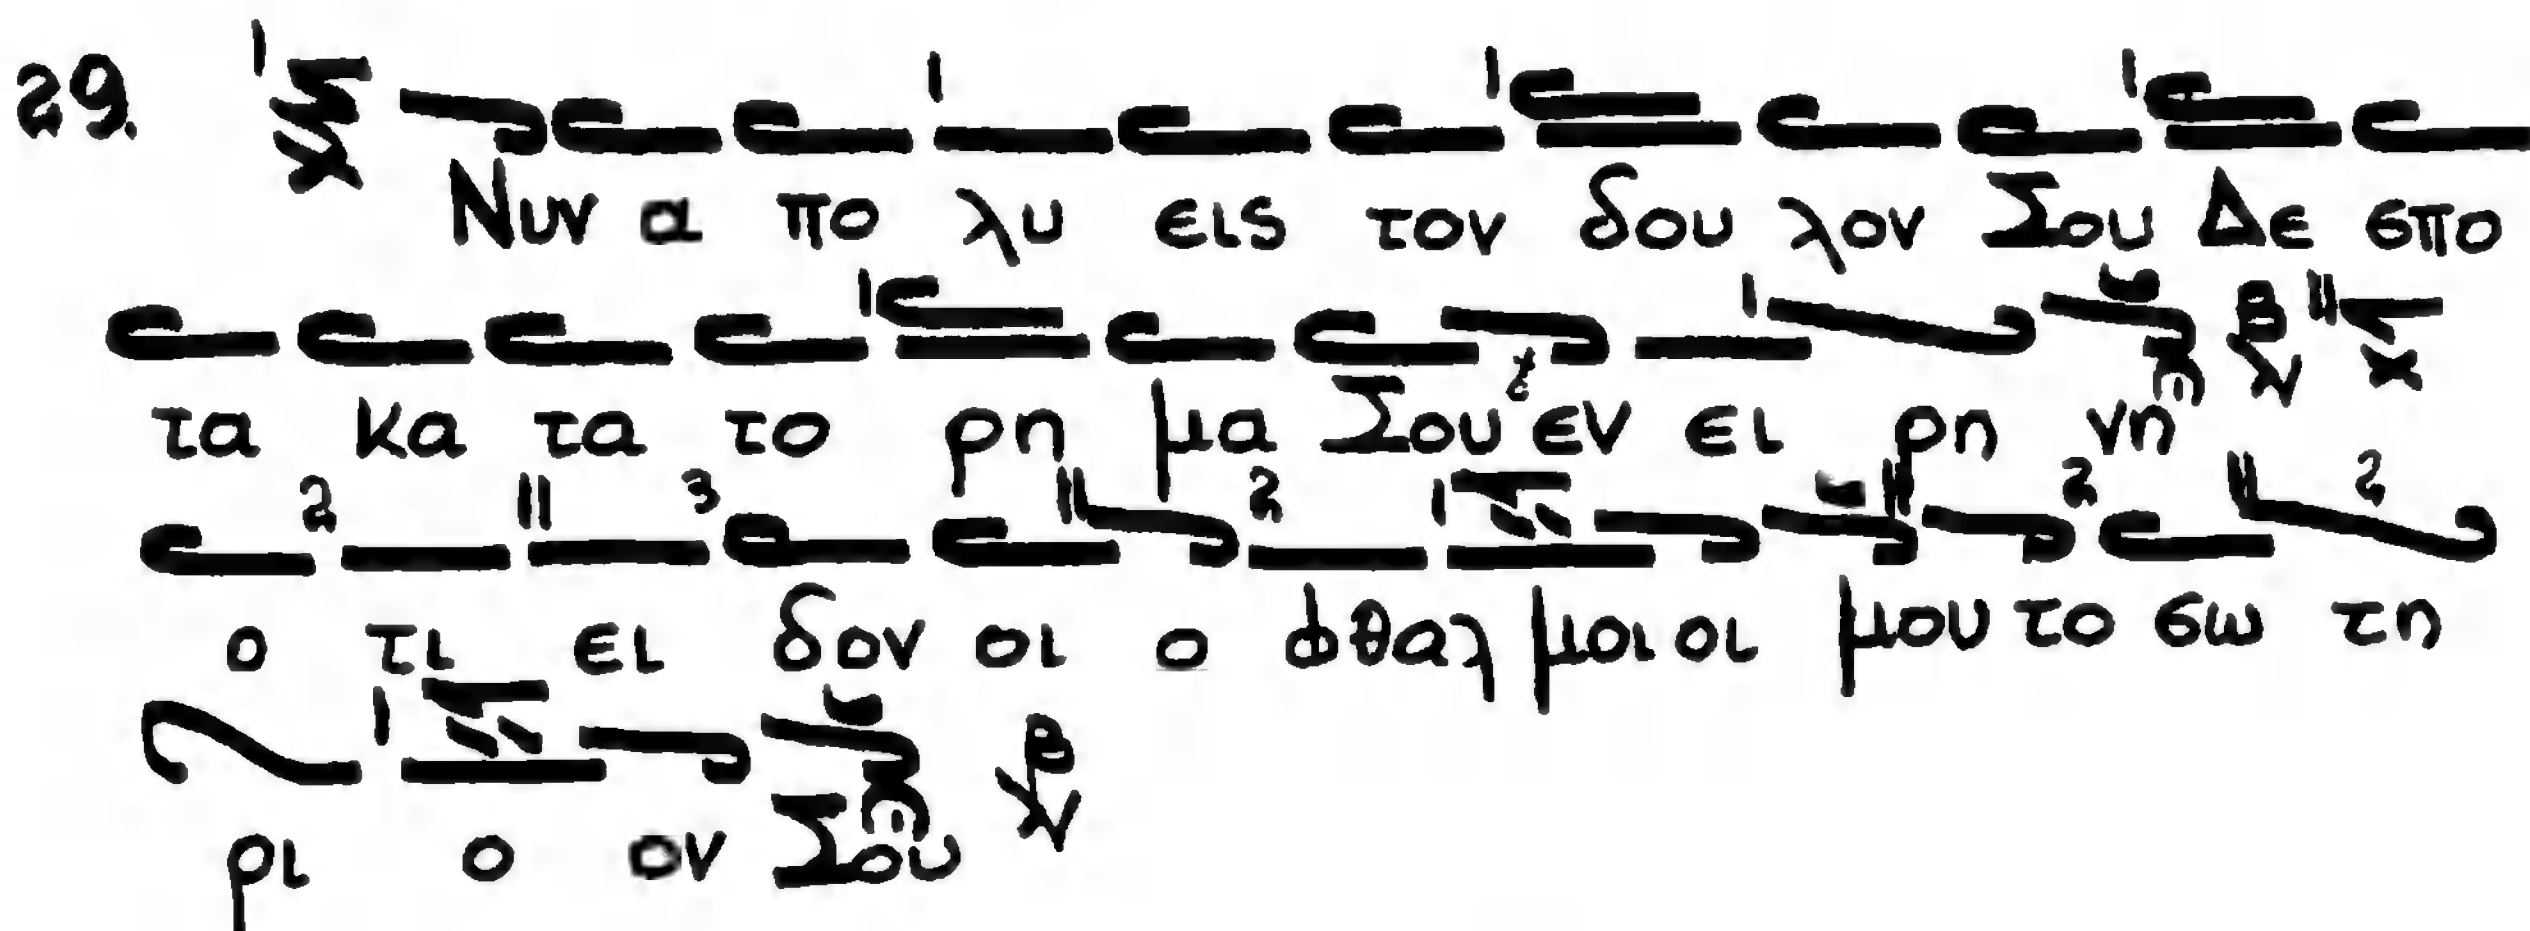 29. Νυν α πο λυ εις τον δου λον Σου Δε σπο
τα κα τα το ρη μα Σου εν ει ρη νη
ο τι ει δον οι ο φθαλ μοι οι μου το σω τη
ρι ο ον Σου